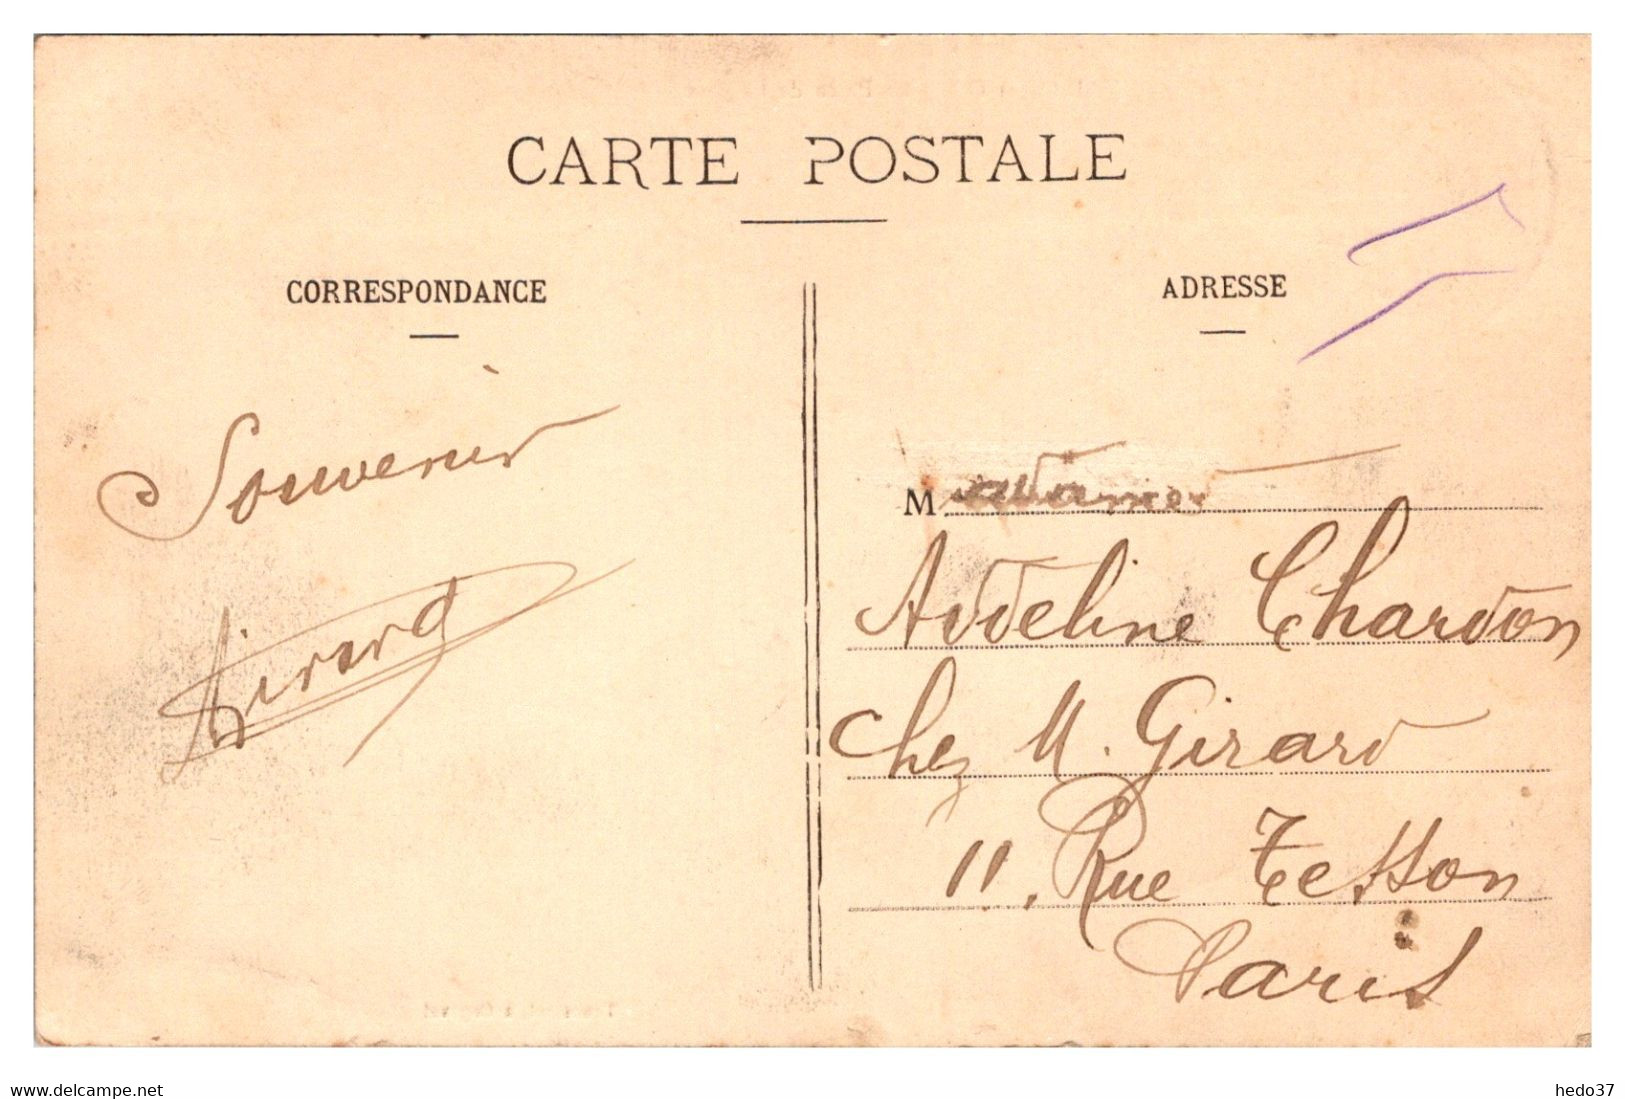 CARTE POSTALE
CORRESPONDANCE
ADRESSE
Souvenir
Girard
M
Addeline Chardon
chez M. Girard
11, Rue Tesson
Paris
www.delcampe.net
hedo37